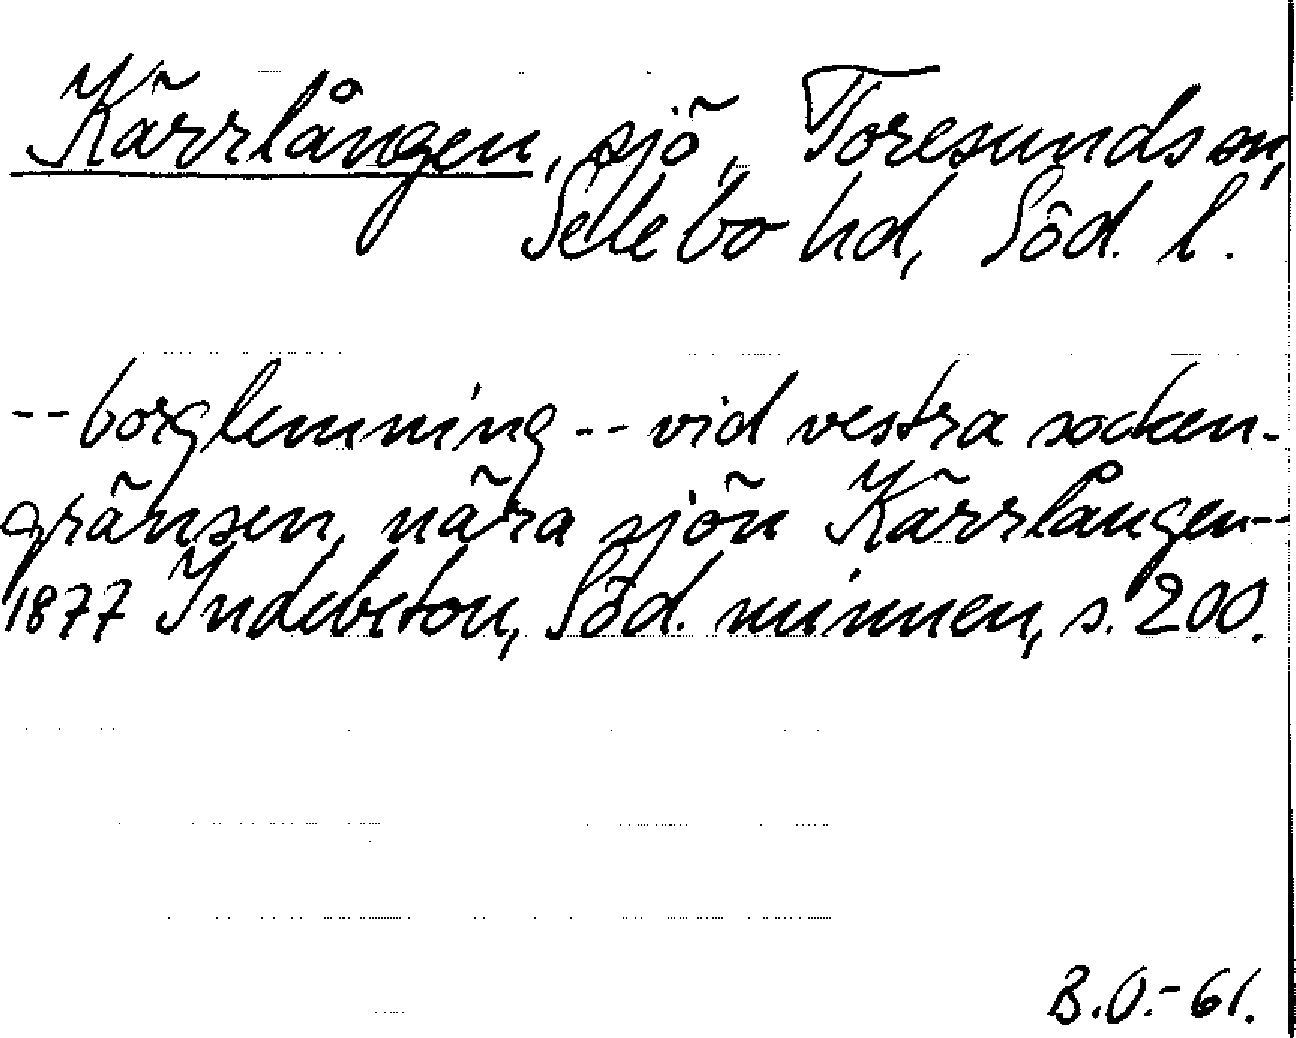 Kärrlången, sjö, Toresunds sn,
Selebo hd, Söd. l.
-- borglemning -- vid vestra socken-
gränsen, nära sjön Kärrlången --
1877 Indebetou, Söd. minnen, s. 200.
B.O.-61.